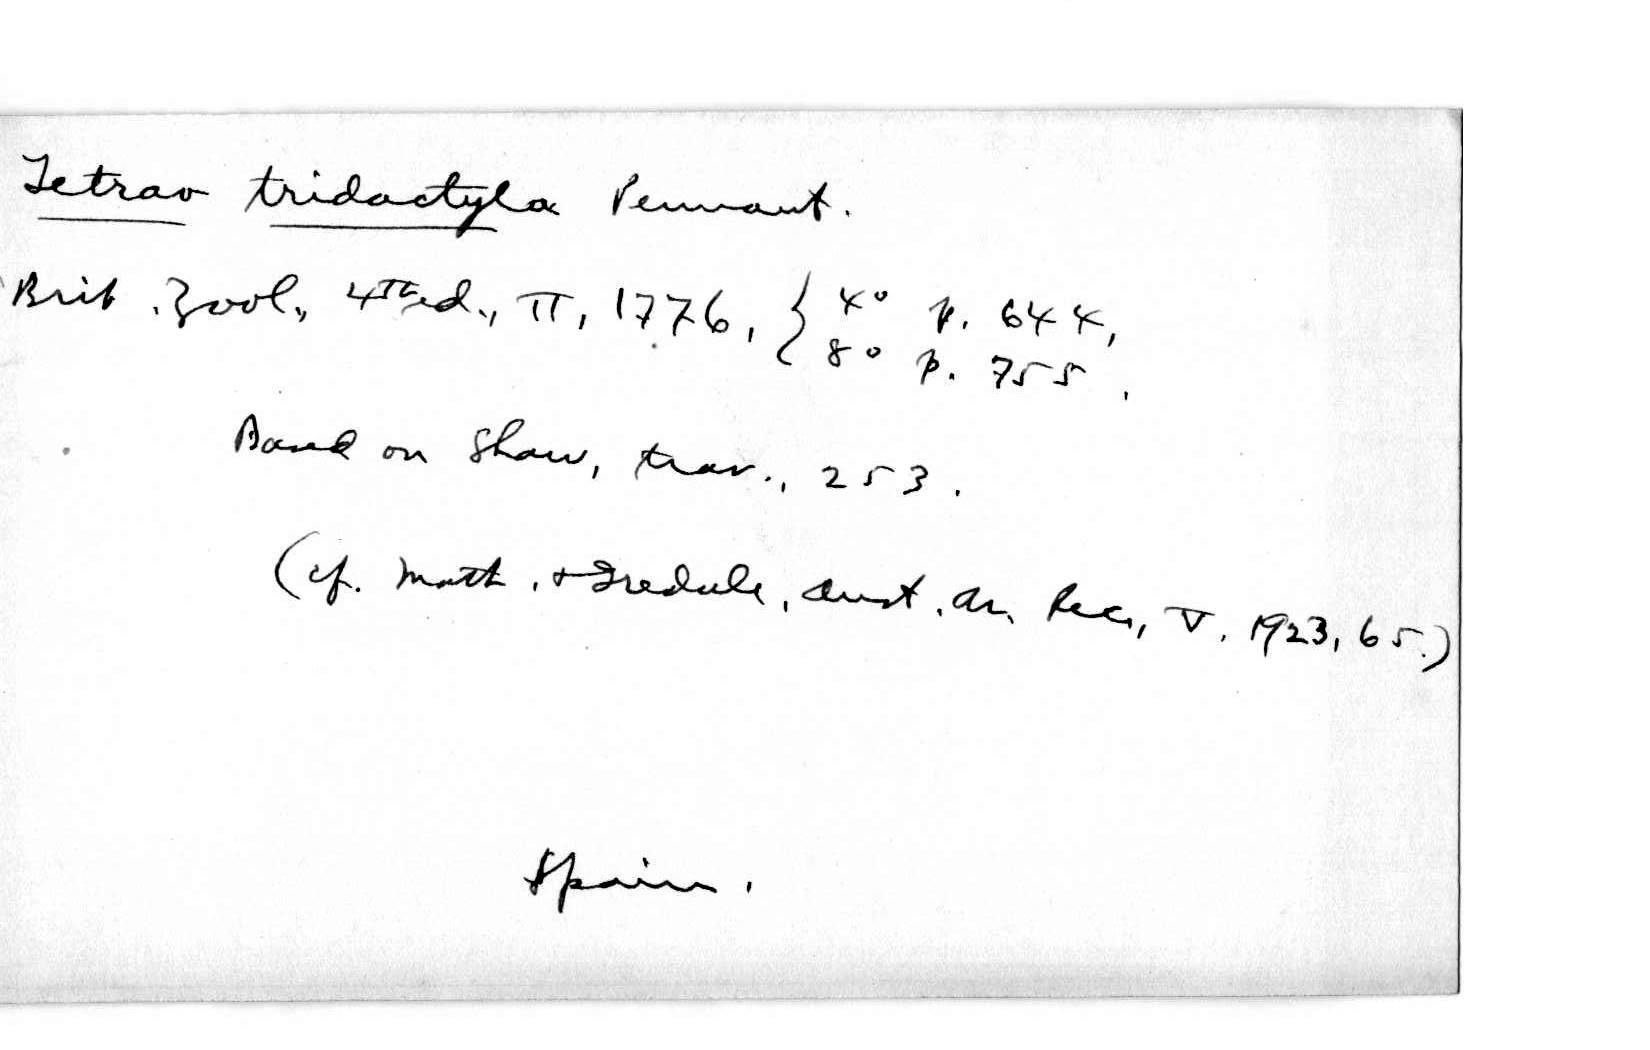 Tetrao tridactyla Pennant.
Brit. Zool., 4th ed., II, 1776, { 4° p. 644,
8° p. 755.
Based on Shaw, trav., 253.
(cf. Math. & Iredale, Aust. Av. Rec., V, 1923, 65.)
Spain.